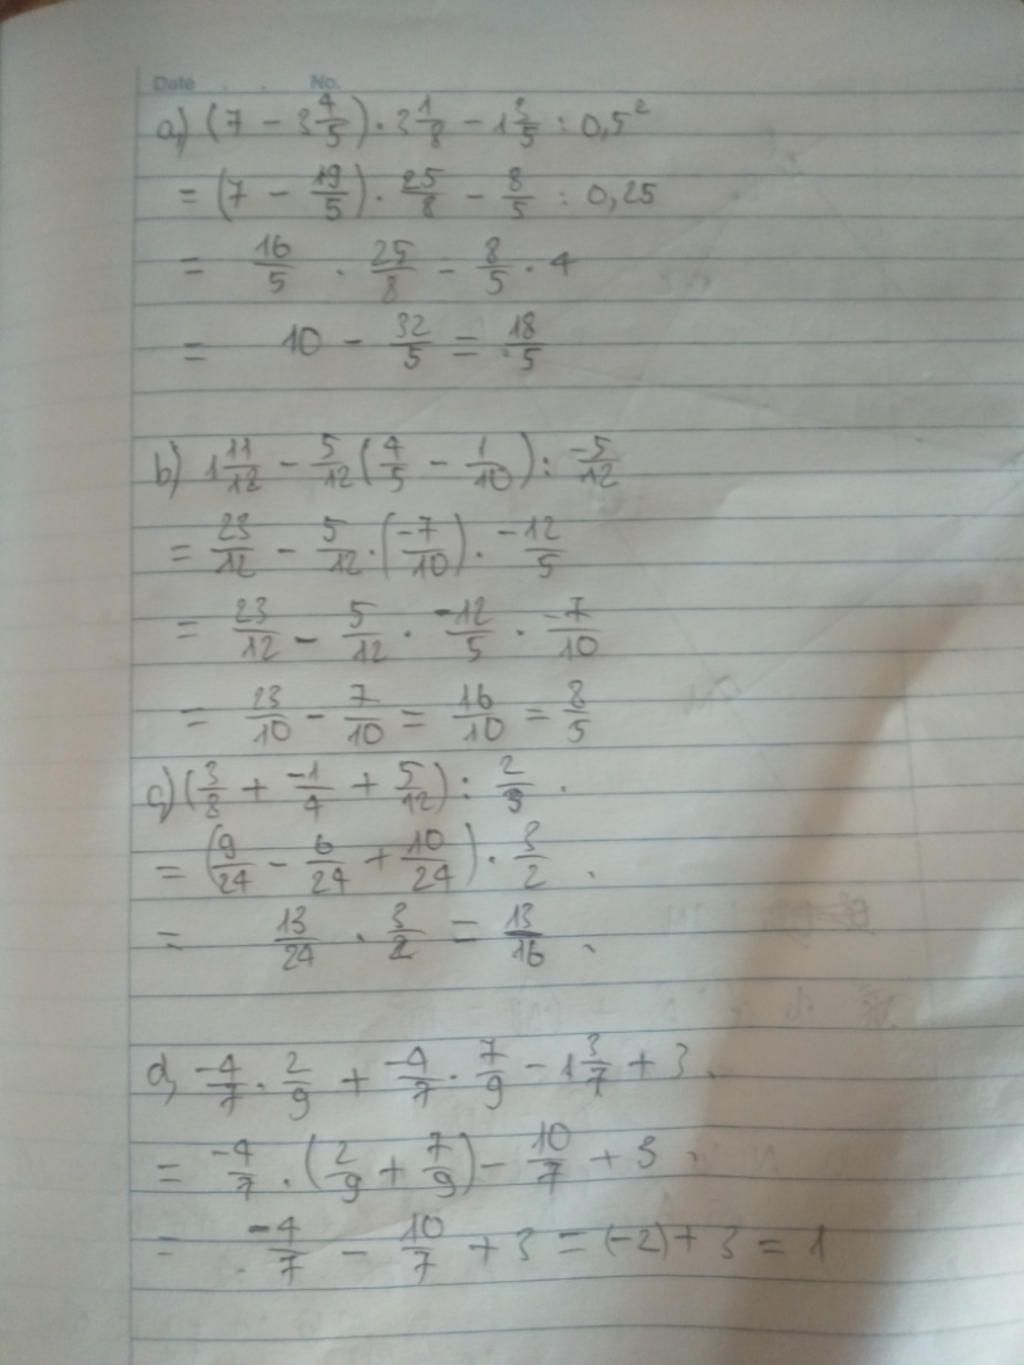 Date . . No.
a) (7 - 3 4/5) · 3 1/8 - 1 3/5 : 0,5²
= (7 - 19/5) · 25/8 - 8/5 : 0,25
= 16/5 · 25/8 - 8/5 · 4
= 10 - 32/5 = 18/5
b) 1 11/12 - 5/12 (4/5 - 1/10) : -5/12
= 23/12 - 5/12 · (-7/10) · -12/5
= 23/12 - 5/12 · -12/5 · -7/10
= 23/10 - 7/10 = 16/10 = 8/5
c) (3/8 + -1/4 + 5/12) : 2/3 .
= (9/24 - 6/24 + 10/24) · 3/2 .
= 13/24 · 3/2 = 13/16 .
d) -4/7 · 2/9 + -4/7 · 7/9 - 1 3/7 + 3 .
= -4/7 · (2/9 + 7/9) - 10/7 + 3 .
= -4/7 - 10/7 + 3 = (-2) + 3 = 1